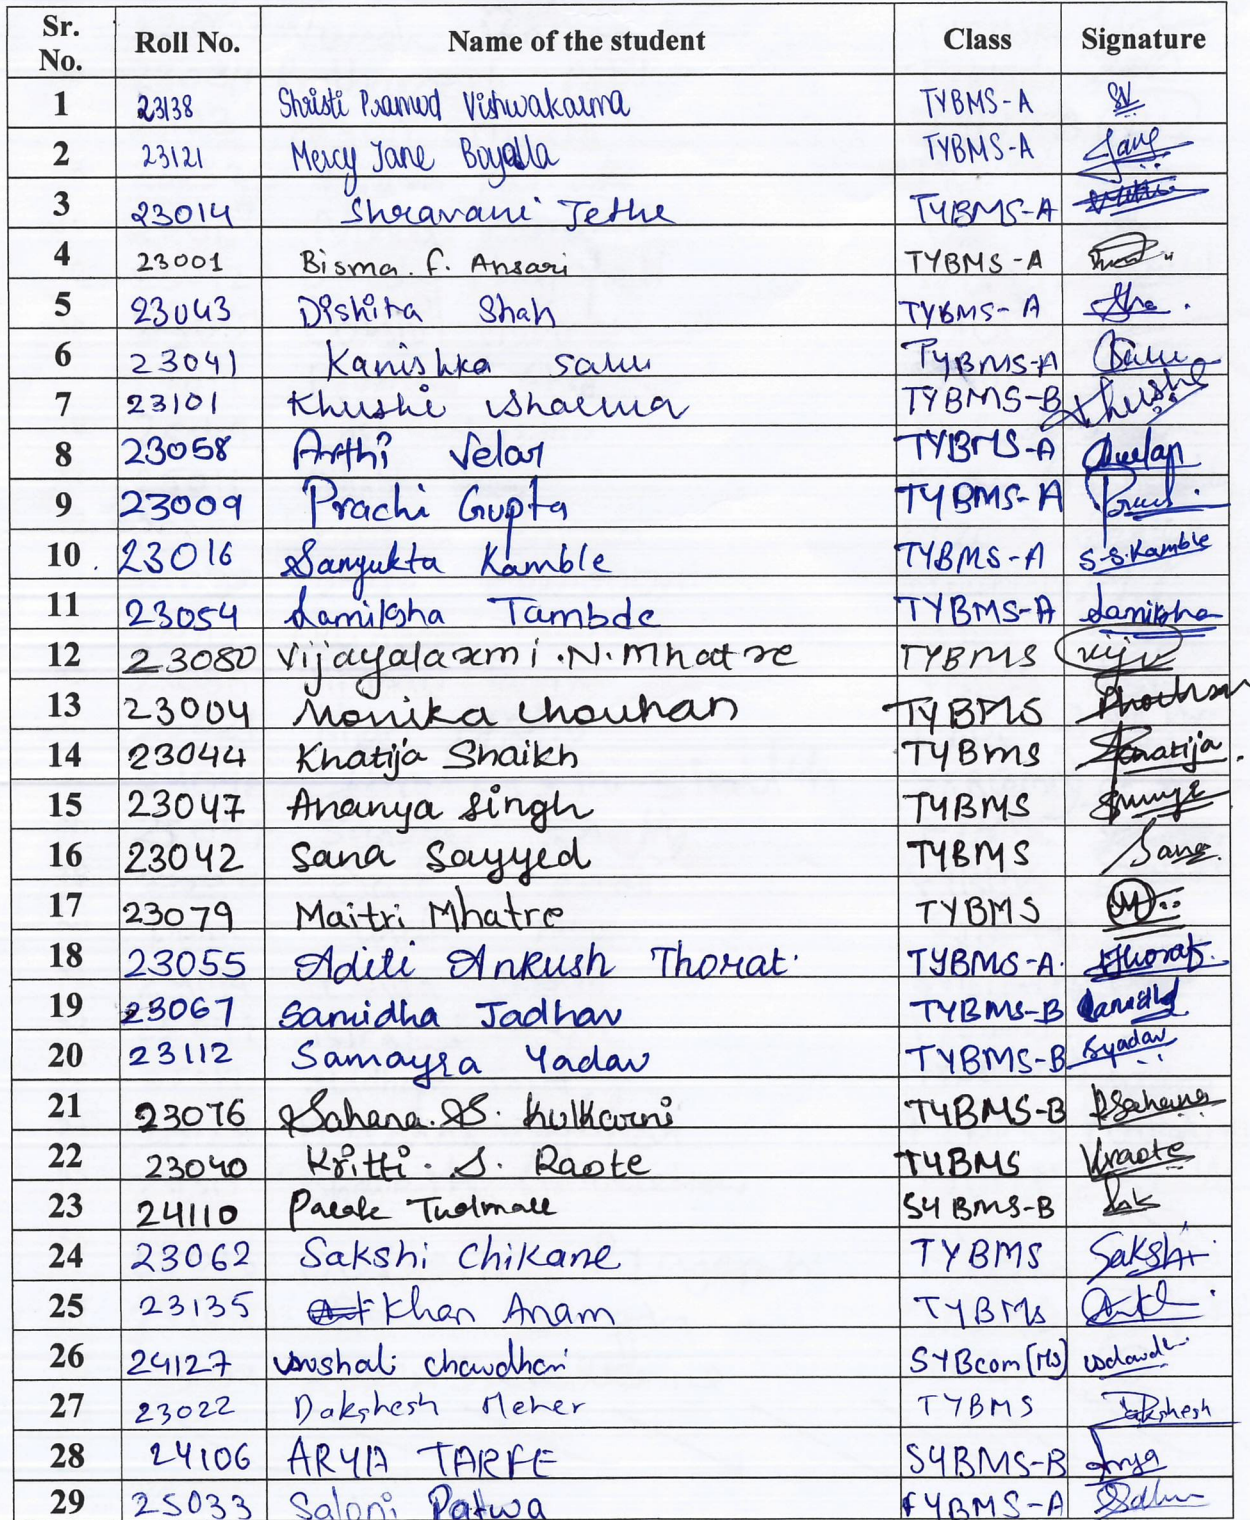 Sr. No. Roll No. Name of the student Class Signature
1 23138 Shristi Pramod Vishwakarma TYBMS-A SV
2 23121 Mercy Jane Boyalla TYBMS-A Jane
3 23014 Shravani Jethe TYBMS-A
4 23001 Bisma. F. Ansari TYBMS-A
5 23043 Dishita Shah TYBMS-A
6 23041 Kanishka Salu TYBMS-A
7 23101 Khushi Sharma TYBMS-B Khushi
8 23058 Arthi Velar TYBMS-A
9 23009 Prachi Gupta TYBMS-A
10 23016 Sanyukta Kamble TYBMS-A S.S.Kamble
11 23054 Samiksha Tambde TYBMS-A Samiksha
12 23080 Vijayalaxmi.N.Mhatre TYBMS
13 23004 Monika Chouhan TYBMS
14 23044 Khatija Shaikh TYBMS Khatija
15 23047 Ananya Singh TYBMS
16 23042 Sana Sayyed TYBMS Sana
17 23079 Maitri Mhatre TYBMS
18 23055 Aditi Ankush Thorat. TYBMS-A. Thorat
19 23067 Samidha Jadhav TYBMS-B
20 23112 Samayra Yadav TYBMS-B Syadav
21 23076 Sahana.S. Kulkarni TYBMS-B Sahana
22 23040 Kritti. S. Raote TYBMS Kraote
23 24110 Palak SYBMS-B
24 23062 Sakshi Chikane TYBMS Sakshi
25 23135 Khan Anam TYBMS
26 24127 Vrushali Chaudhari SYBcom(MS)
27 23022 Dakshesh Meher TYBMS Dakshesh
28 24106 ARYA TARFE SYBMS-B Arya
29 25033 Saloni Patwa FYBMS-A